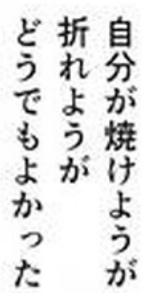 自分が焼けようが
折れようが
どうでもよかった